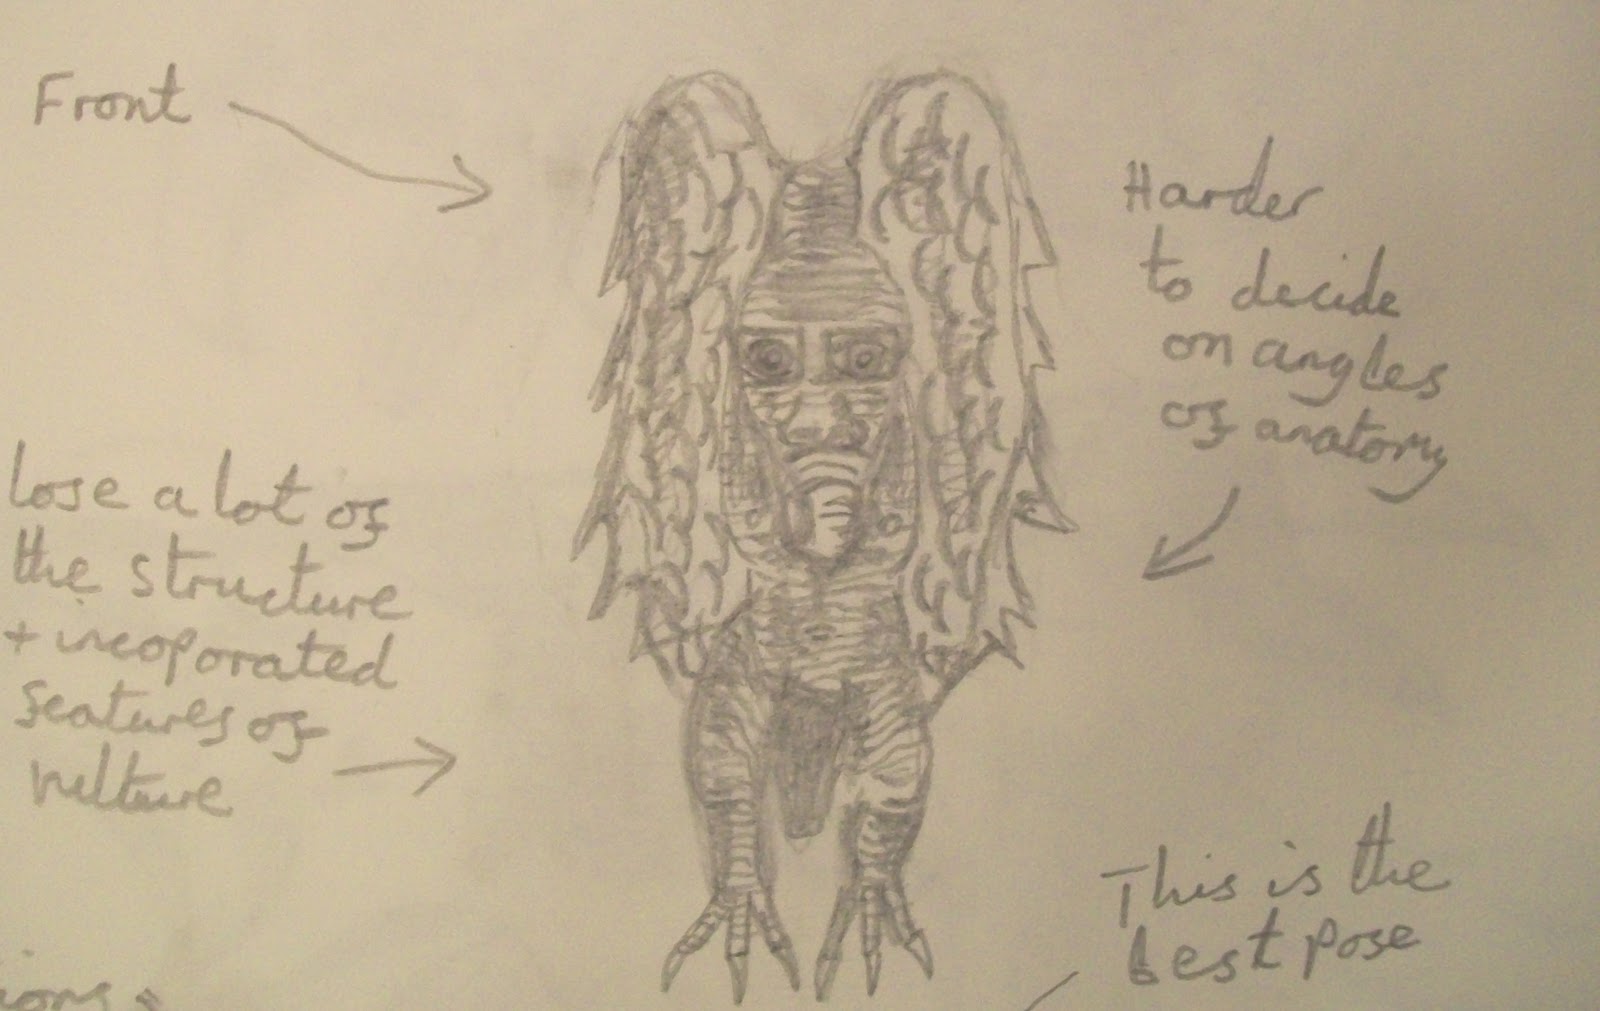 Front
Harder
to decide
on angles
of anatomy
lose a lot of
the structure
+ incoporated
features of
vulture
This is the
best pose